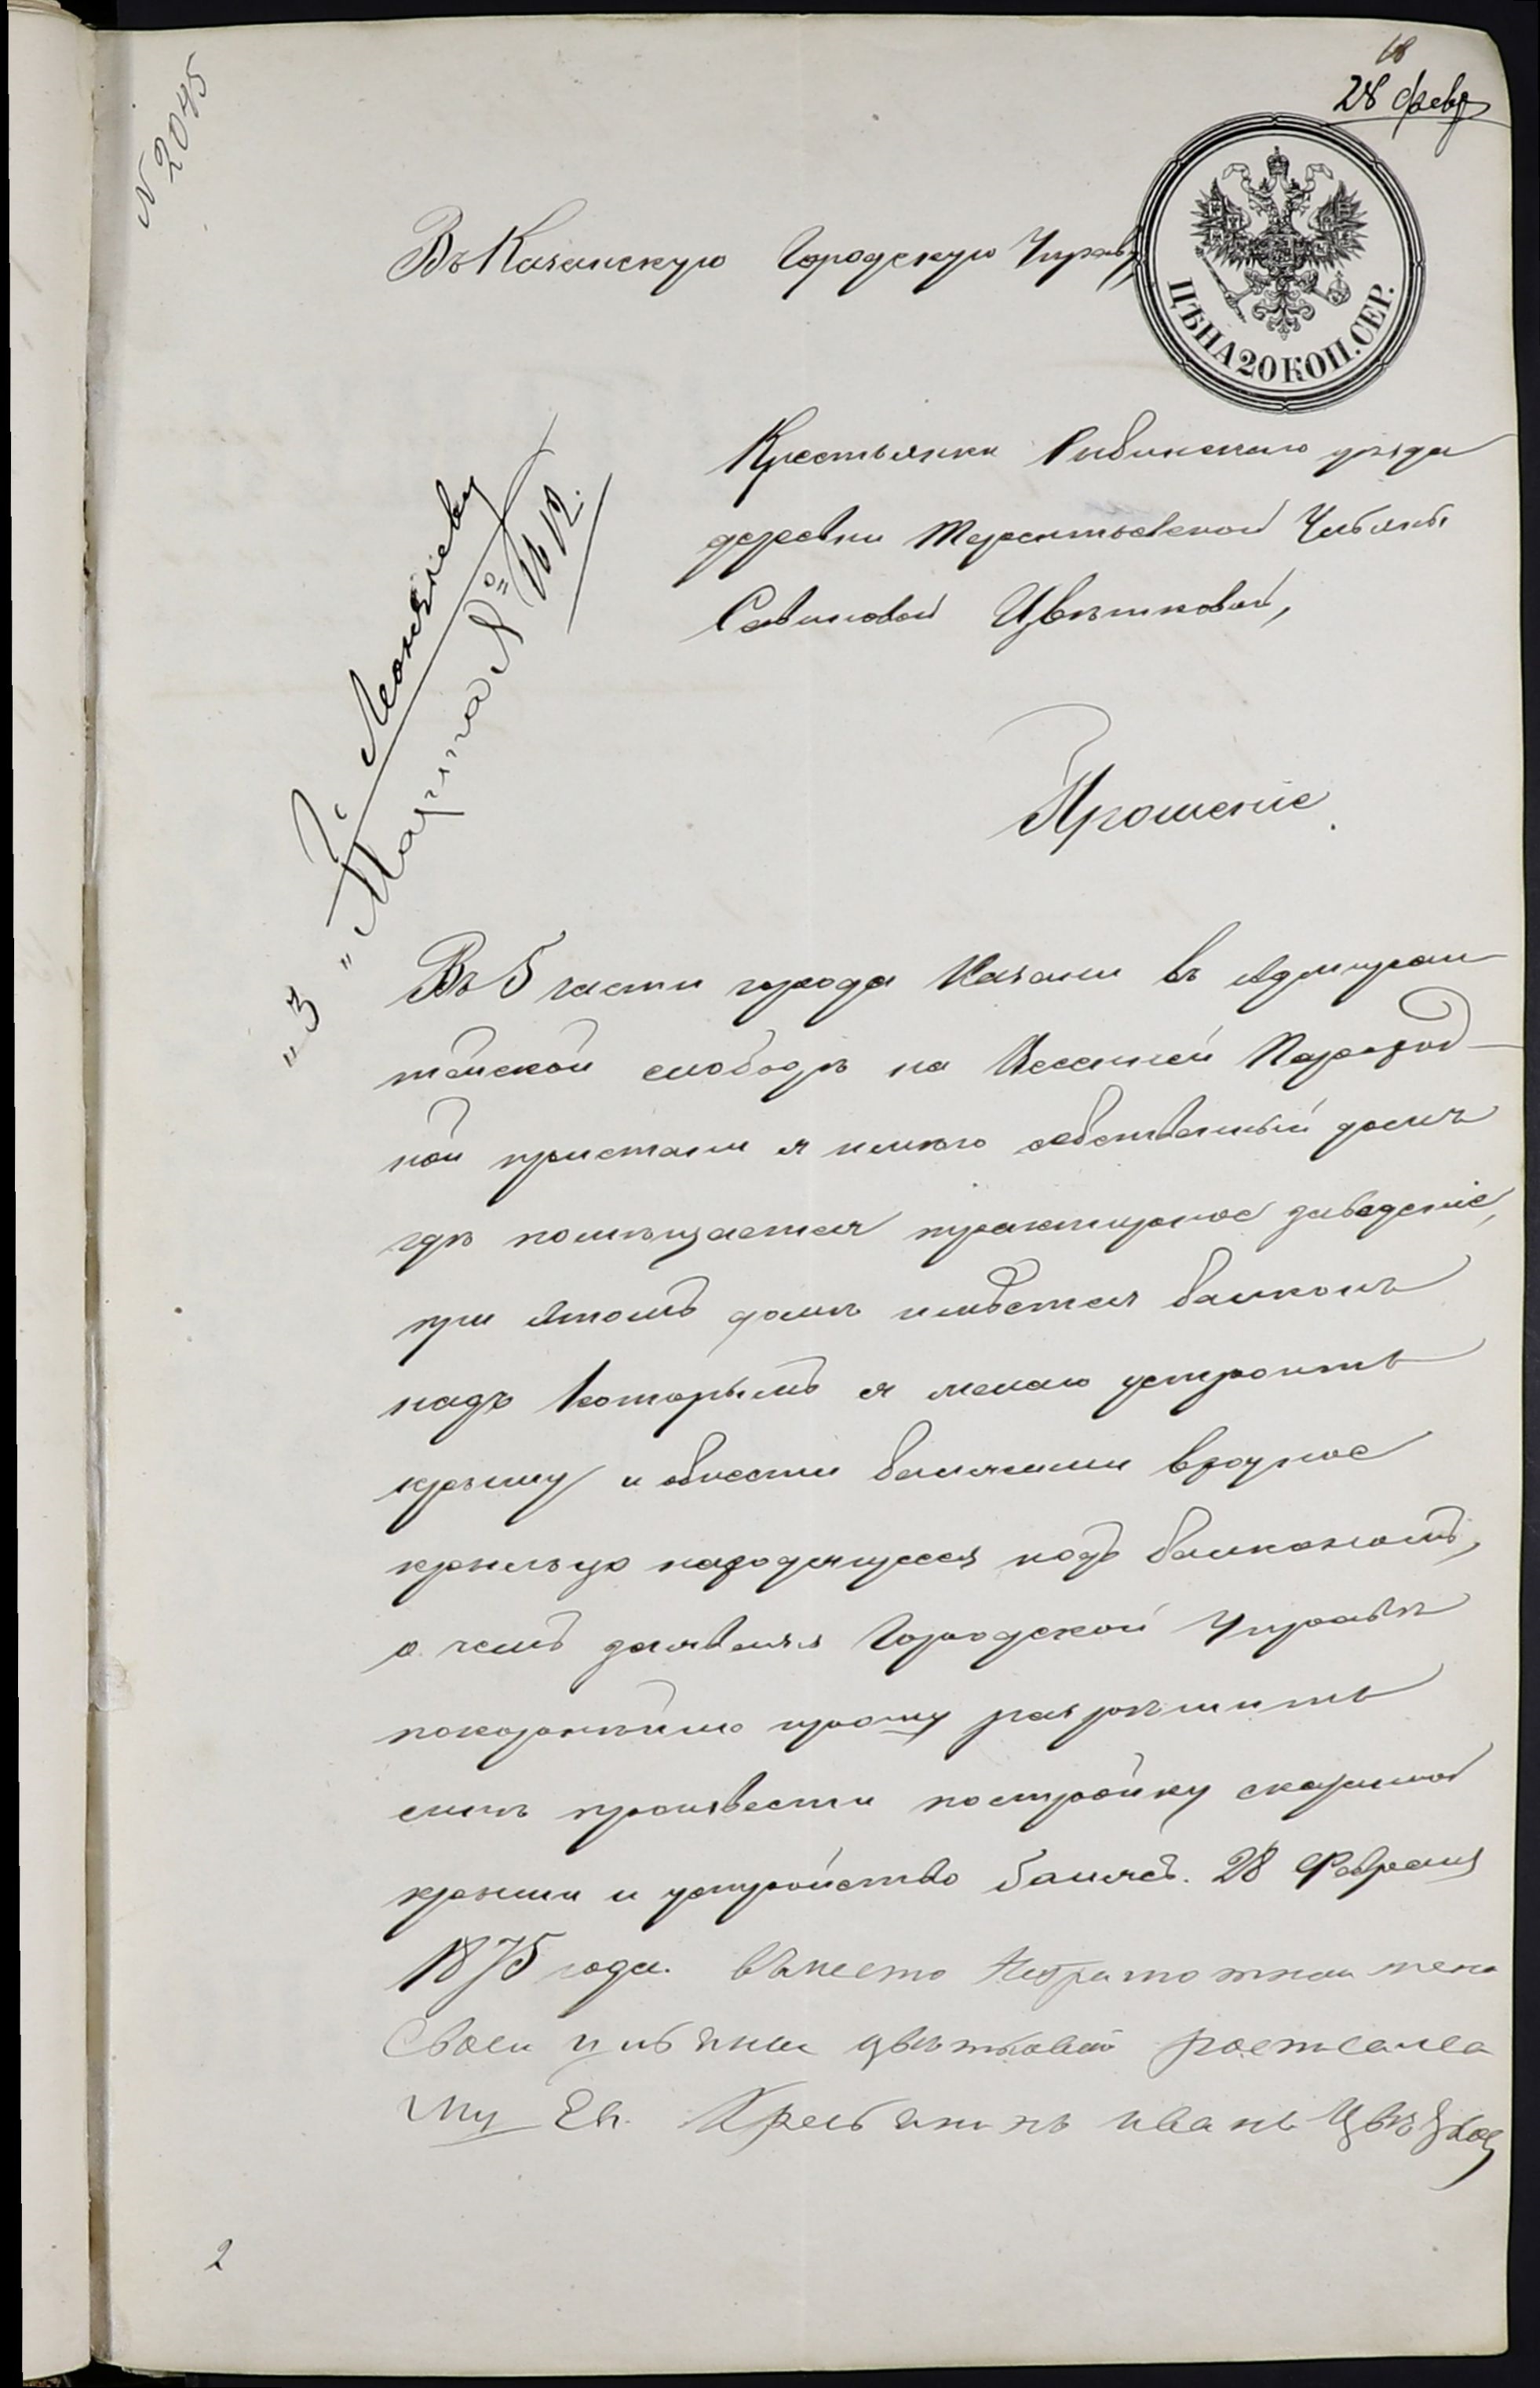 N 2045
18
28 февр
Въ Казанскую Городскую Управу
ЦѢНА 20 КОП. СЕР.
Крестьянки Рибинскаго уѣзда
деревни Терентьевской Ульяны
Савиновой Цвѣтковой,
Прошеніе
Г. Леонтьеву
"3 " Марта № 1612.
Въ 5 части города Казани въ Адмирал-
тейской слободѣ на Весенней Пароход-
ной пристани я имѣю собственный домъ
гдѣ помѣщается трактирное заведеніе,
при этомъ домѣ имѣется балконъ
надъ которымъ я желаю устроить
крышу и обнести балясами входное
крыльцо находящееся подъ балкономъ,
о чемъ заявляя Городской Управѣ
покорнѣйше прошу разрѣшить
мнѣ произвести постройку сказанной
крыши и устройство балясъ. 28 Февраля
1875 года. вместо неграмотнаи жены
Своеи ульяны цветковай росписалса
муж Ея. Кресьянинъ иванъ Цвѣтков
2